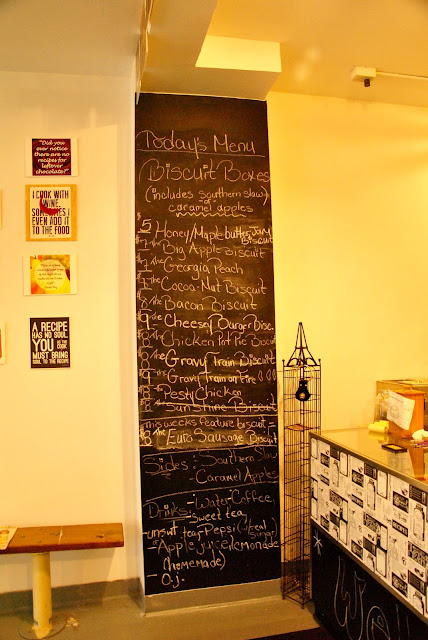 "Did you
ever notice
there are no
recipes for
leftover
chocolate?"
I COOK WITH
WINE,
SOMETIMES I
EVEN ADD IT
TO THE FOOD
A RECIPE
HAS NO SOUL.
YOU AS THE COOK
MUST BRING
SOUL TO THE RECIPE
Today's Menu
Biscuit Boxes
(includes southern slaw
or
caramel apples
$5 Honey/Maple butter/Jam
Biscuit
$7 the Big Apple Biscuit
the Georgia Peach
the Cocoa-Nut Biscuit
$8 the Bacon Biscuit
$9 the Cheesey Burger Bisc.
$8 the Chicken Pot Pie Biscuit
the Gravy Train Biscuit
$9 the Gravy Train on Fire
$8 the Pesty Chicken
the Sunshine Biscuit
this weeks feature biscuit =
the Euro Sausage Biscuit
Sides: Southern Slaw
- Caramel Apples
Drinks: - Water Coffee,
Sweet tea
- unswt. tea, Pepsi (real
sugar)
- Apple juice lemonade
(homemade)
- O.j.